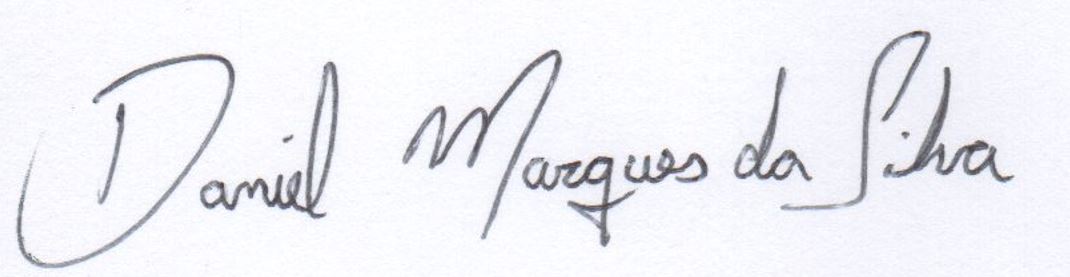 Daniel Marques da Silva